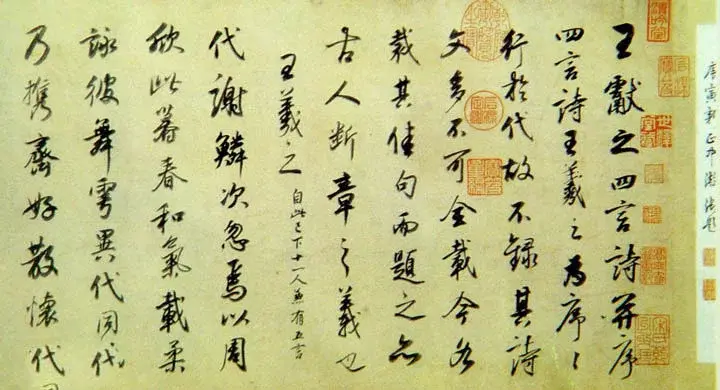 庚寅新正
王獻之四言詩并序
四言詩王羲之為序〻
行於代故不錄其詩
文多不可全載今各
裁其佳句而題之亦
古人斷章之義也
王羲之 自此已下十一人兼有五言
代謝鱗次忽焉以周
欣此暮春和氣載柔
詠彼舞雩異代同代
乃攜齊好散懷代